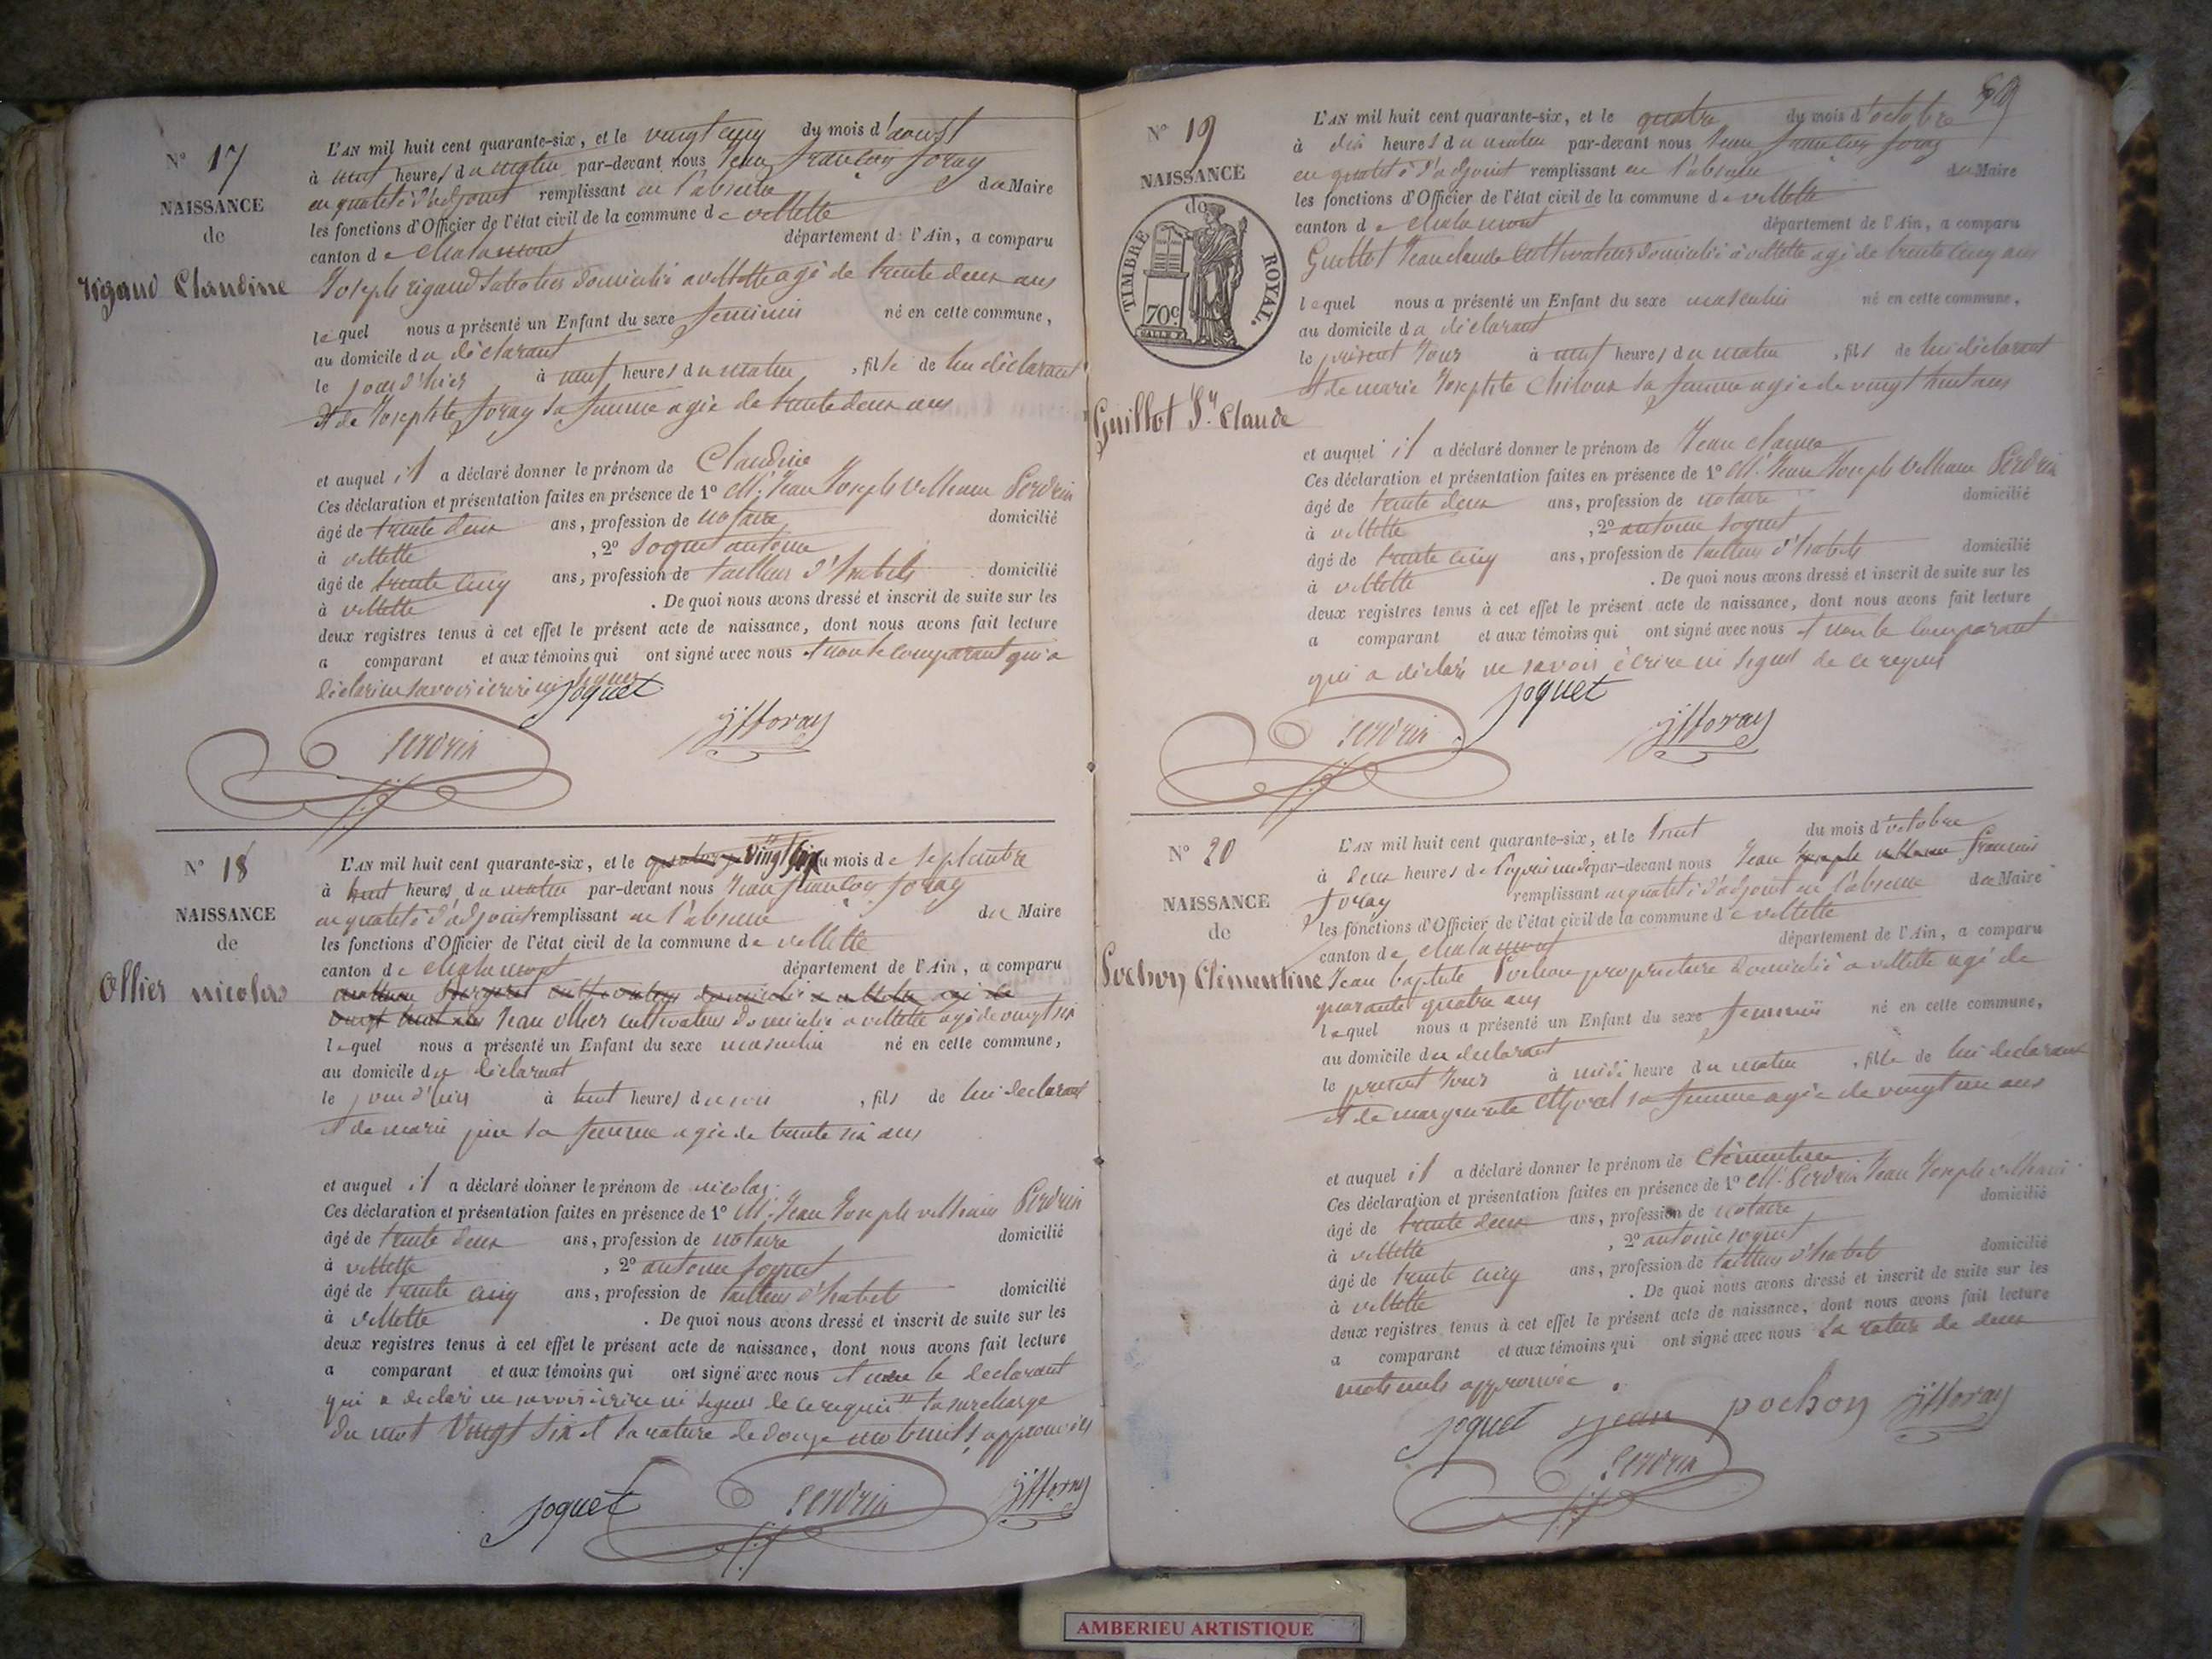 N° 17
NAISSANCE
de
rigaud Claudine
L'AN mil huit cent quarante-six, et le vingt cinq du mois d'aoust
à neuf heures du matin par-devant nous Jean françois foray
en qualité d'adjoint remplissant en l'absence du Maire
les fonctions d'Officier de l'état civil de la commune de villette
canton de chalamont département de l'Ain, a comparu
Joseph rigaud sabotier domicilié a villette agé de trente deux ans
lequel nous a présenté un Enfant du sexe feminin né en cette commune,
au domicile du déclarant
le jour d'hier à neuf heures du matin, fille de lui déclarant
et de Josephte foray sa femme agée de trente deux ans
et auquel il a déclaré donner le prénom de Claudine
Ces déclaration et présentation faites en présence de 1° Mr. Jean Joseph
âgé de trente deux ans, profession de notaire domicilié
à villette, 2° Joquet antoine
âgé de trente cinq ans, profession de tailleur d'habits domicilié
à villette. De quoi nous avons dressé et inscrit de suite sur les
deux registres tenus à cet effet le présent acte de naissance, dont nous avons fait lecture
a comparant et aux témoins qui ont signé avec nous et non le comparant qui a
déclaré ne savoir écrire ni signer
joquet
jfforay
N° 18
NAISSANCE
de
Ollier nicolas
L'AN mil huit cent quarante-six, et le vingt six du mois de septembre
à huit heures du matin par-devant nous Jean françois foray
en qualité d'adjoint remplissant en l'absence du Maire
les fonctions d'Officier de l'état civil de la commune de villette
canton de chalamont département de l'Ain, a comparu
cultivateur domicilié a villette agé de
vingt huit ans Jean ollier cultivateur domicilié a villette agé de vingt six
lequel nous a présenté un Enfant du sexe masculin né en cette commune,
au domicile du déclarant
le jour d'hier à huit heures du soir, fils de lui declarant
et de marie sa femme agée de trente six ans
et auquel il a déclaré donner le prénom de nicolas
Ces déclaration et présentation faites en présence de 1° Mr. Jean Joseph
âgé de trente deux ans, profession de notaire domicilié
à villette, 2° antoine joquet
âgé de trente cinq ans, profession de tailleur d'habits domicilié
à villette. De quoi nous avons dressé et inscrit de suite sur les
deux registres tenus à cet effet le présent acte de naissance, dont nous avons fait lecture
a comparant et aux témoins qui ont signé avec nous et non le declarant
qui a declaré ne savoir écrire ni signer de ce requis la surcharge
du mot Vingt six et la rature de douze mots nuls approuvés
joquet
jfforay
59
N° 19
NAISSANCE
de
TIMBRE ROYAL.
70c
Guillot Jn Claude
L'AN mil huit cent quarante-six, et le quatre du mois d'octobre
à dix heures du matin par-devant nous Jean françois foray
en qualité d'adjoint remplissant en l'absence du Maire
les fonctions d'Officier de l'état civil de la commune de villette
canton de chalamont département de l'Ain, a comparu
Guillot Jean claude cultivateur domicilié à villette agé de trente cinq ans
lequel nous a présenté un Enfant du sexe masculin né en cette commune,
au domicile du déclarant
le présent jour à neuf heures du matin, fils de lui déclarant
et de marie Josephte sa femme agée de vingt huit ans
et auquel il a déclaré donner le prénom de Jean claude
Ces déclaration et présentation faites en présence de 1° Mr. Jean Joseph
âgé de trente deux ans, profession de notaire domicilié
à villette, 2° antoine joquet
âgé de trente cinq ans, profession de tailleur d'habits domicilié
à villette. De quoi nous avons dressé et inscrit de suite sur les
deux registres tenus à cet effet le présent acte de naissance, dont nous avons fait lecture
a comparant et aux témoins qui ont signé avec nous et non le comparant
qui a déclaré ne savoir écrire ni signer de ce requis
joquet
jfforay
N° 20
NAISSANCE
de
Pochon Clémentine
L'AN mil huit cent quarante-six, et le huit du mois d'octobre
à deux heures de l'après midi par-devant nous Jean françois
foray remplissant en qualité d'adjoint en l'absence du Maire
les fonctions d'Officier de l'état civil de la commune de villette
canton de chalamont département de l'Ain, a comparu
Jean baptiste Pochon proprietaire domicilié a villette agé de
quarante quatre ans
lequel nous a présenté un Enfant du sexe feminin né en cette commune,
au domicile du declarant
le présent jour à midi heure du matin, fille de lui declarant
et de marguerite sa femme agée de vingt un ans
et auquel il a déclaré donner le prénom de Clémentine
Ces déclaration et présentation faites en présence de 1° Mr. Jean Joseph
âgé de trente deux ans, profession de notaire domicilié
à villette, 2° antoine joquet
âgé de trente cinq ans, profession de tailleur d'habits domicilié
à villette. De quoi nous avons dressé et inscrit de suite sur les
deux registres tenus à cet effet le présent acte de naissance, dont nous avons fait lecture
a comparant et aux témoins qui ont signé avec nous la rature de deux
mots nuls approuvée.
joquet jean pochon jfforay
AMBERIEU ARTISTIQUE